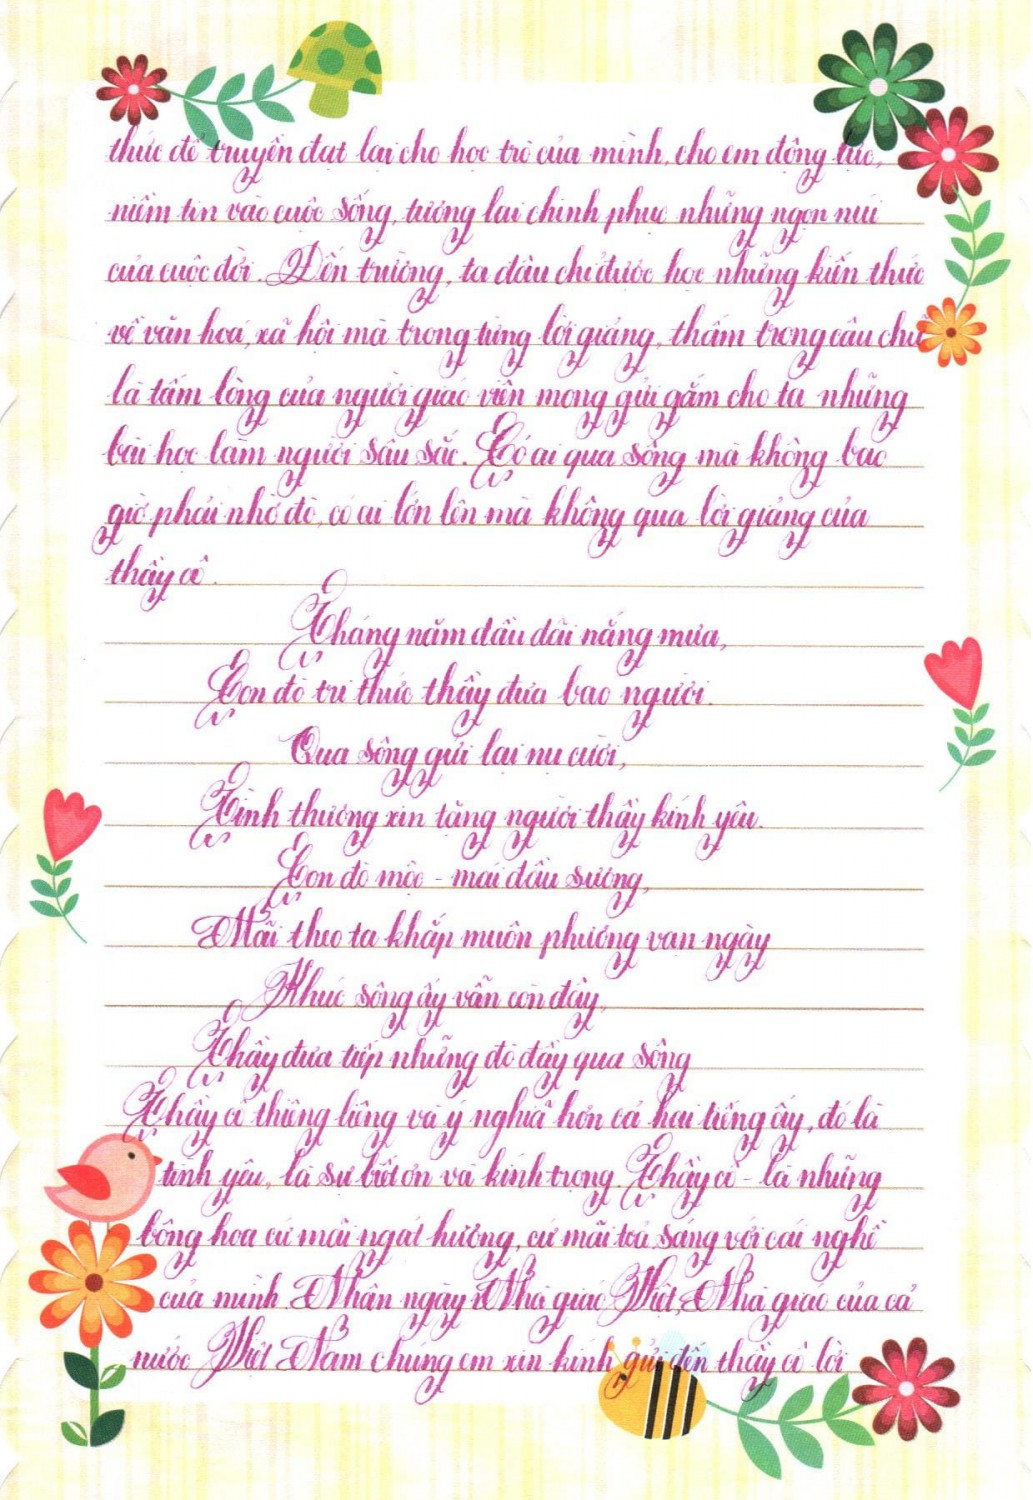 thức để truyền đạt lại cho học trò của mình, cho em động lực,
niềm tin vào cuộc sống, tương lai chinh phục những ngọn núi
của cuộc đời. Đến trường, ta đâu chỉ được học những kiến thức
về văn hoá, xã hội mà trong từng lời giảng, thấm trong câu chữ
là tấm lòng của người giáo viên mong gửi gắm cho ta những
bài học làm người sâu sắc. Có ai qua sông mà không bao
giờ phải nhờ đò, có ai lớn lên mà không qua lời giảng của
thầy cô.
Tháng năm dầu dãi nắng mưa,
Con đò tri thức thầy đưa bao người.
Qua sông gửi lại nụ cười,
Tình thương xin tặng người thầy kính yêu.
Con đò mộc - mái đầu sương,
Mãi theo ta khắp muôn phương vạn ngày
Khúc sông ấy vẫn còn đây,
Thầy đưa tiếp những đò đầy qua sông
Thầy cô thiêng liêng và ý nghĩa hơn cả hai tiếng ấy, đó là
tình yêu, là sự biết ơn và kính trọng. Thầy cô - là những
bông hoa cứ mãi ngát hương, cứ mãi toả sáng với cái nghề
của mình. Nhân ngày Nhà giáo Việt, Nhà giáo của cả
nước Việt Nam chúng em xin kính gửi đến thầy cô lời